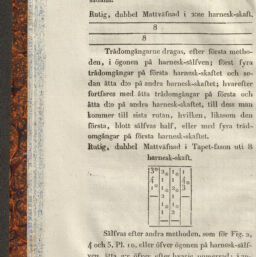 Rutig, dubbel Mattväfnad i 2:ne harnesk-skaft.
8
8
Trådomgångarne dragas, efter första metho-
den, i ögonen på harnesk-sälfven; först fyra
trådomgångar på första harnesk-skaftet och se-
dan åtta d:o på andra harnesk-skaftet; hvarefter
fortfares med åtta trådomgångar på första och
åtta d:o på andra harnesk-skaftet, till dess man
kommer till sista rutan, hvilken, liksom den
första, blott sälfvas half, eller med fyra tråd-
omgångar på första harnesk-skaftet.
Rutig, dubbel Mattväfnad i Tapet-fason uti 8
harnesk-skaft.
Sälfvas efter andra methoden, som för Fig. 2,
4 och 5, Pl. 10, eller öfver ögonen på harnesk-sälf-